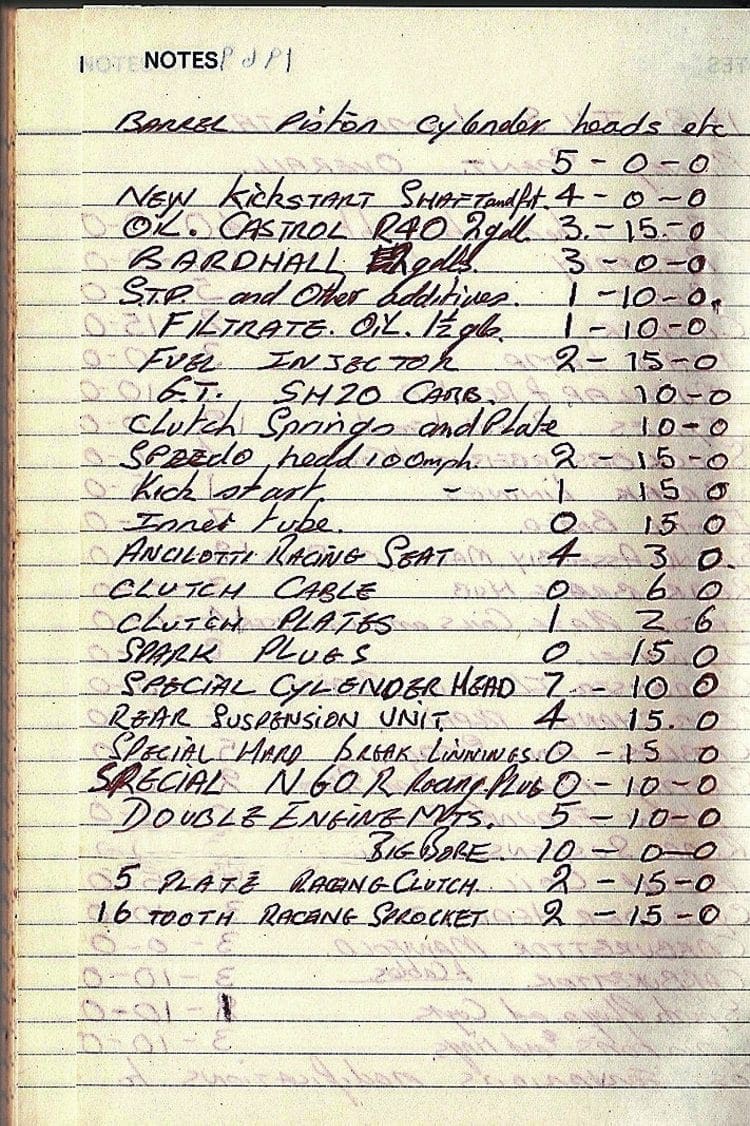 NOTES P d P1
BARREL Piston Cylender heads etc
5 - 0 - 0
NEW Kickstart SHAFT and fit. 4 - 0 - 0
OIL. CASTROL R40 2 gall. 3. - 15. - 0
BARDHALL 2 galls. 3 - 0 - 0
S.T.P. and Other additives. 1 - 10 - 0.
FILTRATE. OIL. 1½ gls. 1 - 10 - 0.
FUEL INJECTOR 2 - 15 - 0
G.T. SH20 CARB. 10 - 0
Clutch Springs and Plate 10 - 0
SPEEDO head 100 mph. 2 - 15 - 0
Kick start. - - 1 15 0
Inner tube. 0 15 0
ANCILOTTI RACING SEAT 4 3 0.
CLUTCH CABLE 0 6 0
CLUTCH PLATES 1 2 6
SPARK PLUGS 0 15 0
SPECIAL CYLENDER HEAD 7 - 10 0
REAR SUSPENSION UNIT. 4 15. 0
SPECIAL HARD break LINNINGS. 0 - 15 0
SPECIAL N60R Racing Plug 0 - 10 - 0
DOUBLE ENGINE MTS. 5 - 10 - 0
BIG BORE. 10 - 0 - 0
5 PLATE RACENG CLUTCH. 2 - 15 - 0
16 TOOTH RACENG SPROCKET 2 - 15 - 0